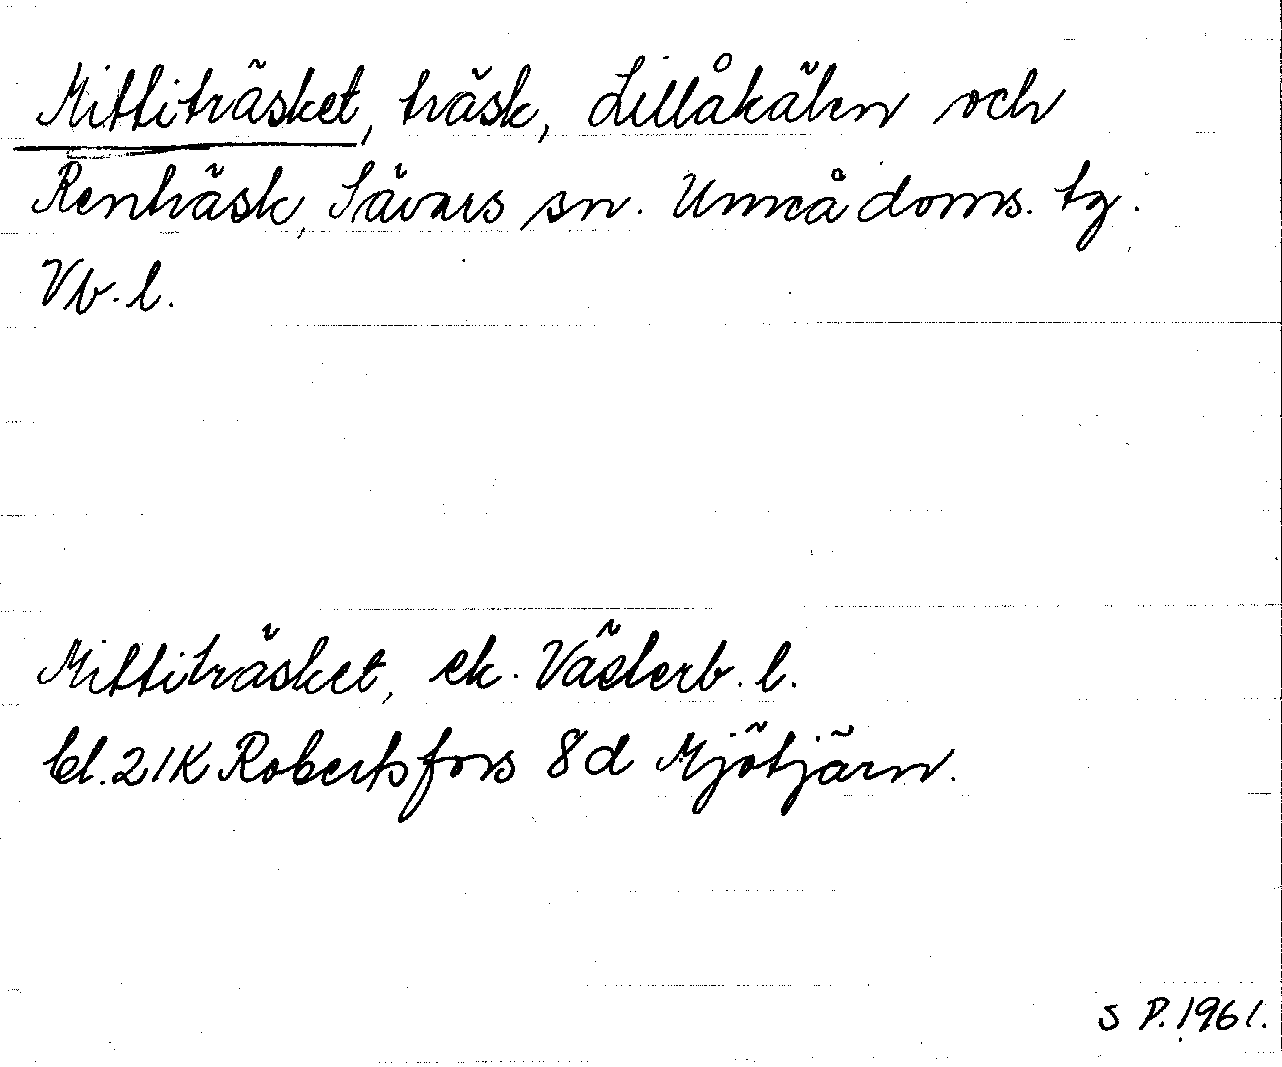 Mittiträsket, träsk, Lillåkälen och
Renträsk, Sävars sn. Umeå doms. tg.
Vb. l.
Mittiträsket, ek. Västerb. l.
bl. 21K Robertsfors 8d Mjötjärn.
S P. 1961.